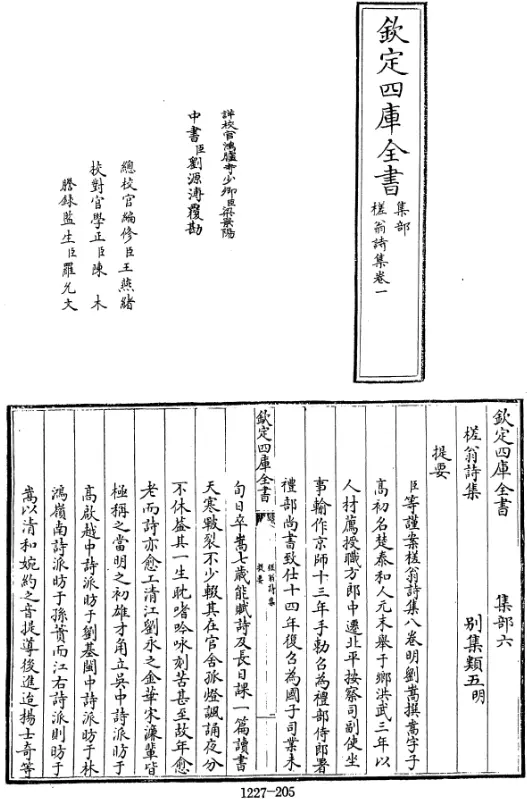 欽定四庫全書
集部
槎翁詩集卷一
詳校官鴻臚寺少卿臣梁景陽
中書臣劉源溥覆勘
總校官編修臣王燕緒
校對官學正臣陳木
謄錄監生臣羅允文
欽定四庫全書 集部六
槎翁詩集 別集類五明
提要
臣等謹案槎翁詩集八卷明劉嵩撰嵩字子
高初名楚泰和人元末舉于鄉洪武三年以
人材薦授職方郎中遷北平按察司副使坐
事輸作京師十三年手勅召為禮部侍郎署
禮部尚書致仕十四年復召為國子司業未
欽定四庫全書
槎翁詩集
提要
一
旬日卒嵩七歲能賦詩及長日課一篇讀書
天寒皸裂不少輟其在官舍孤燈諷誦夜分
不休葢其一生耽嗜吟咏刻苦甚至故年愈
老而詩亦愈工清江劉永之金華宋濂輩皆
極稱之當明之初雄才角立吳中詩派昉于
高啟越中詩派昉于劉基閩中詩派昉于林
鴻嶺南詩派昉于孫蕡而江右詩派則昉于
嵩以清和婉約之音提導後進迨楊士奇等
1227-205